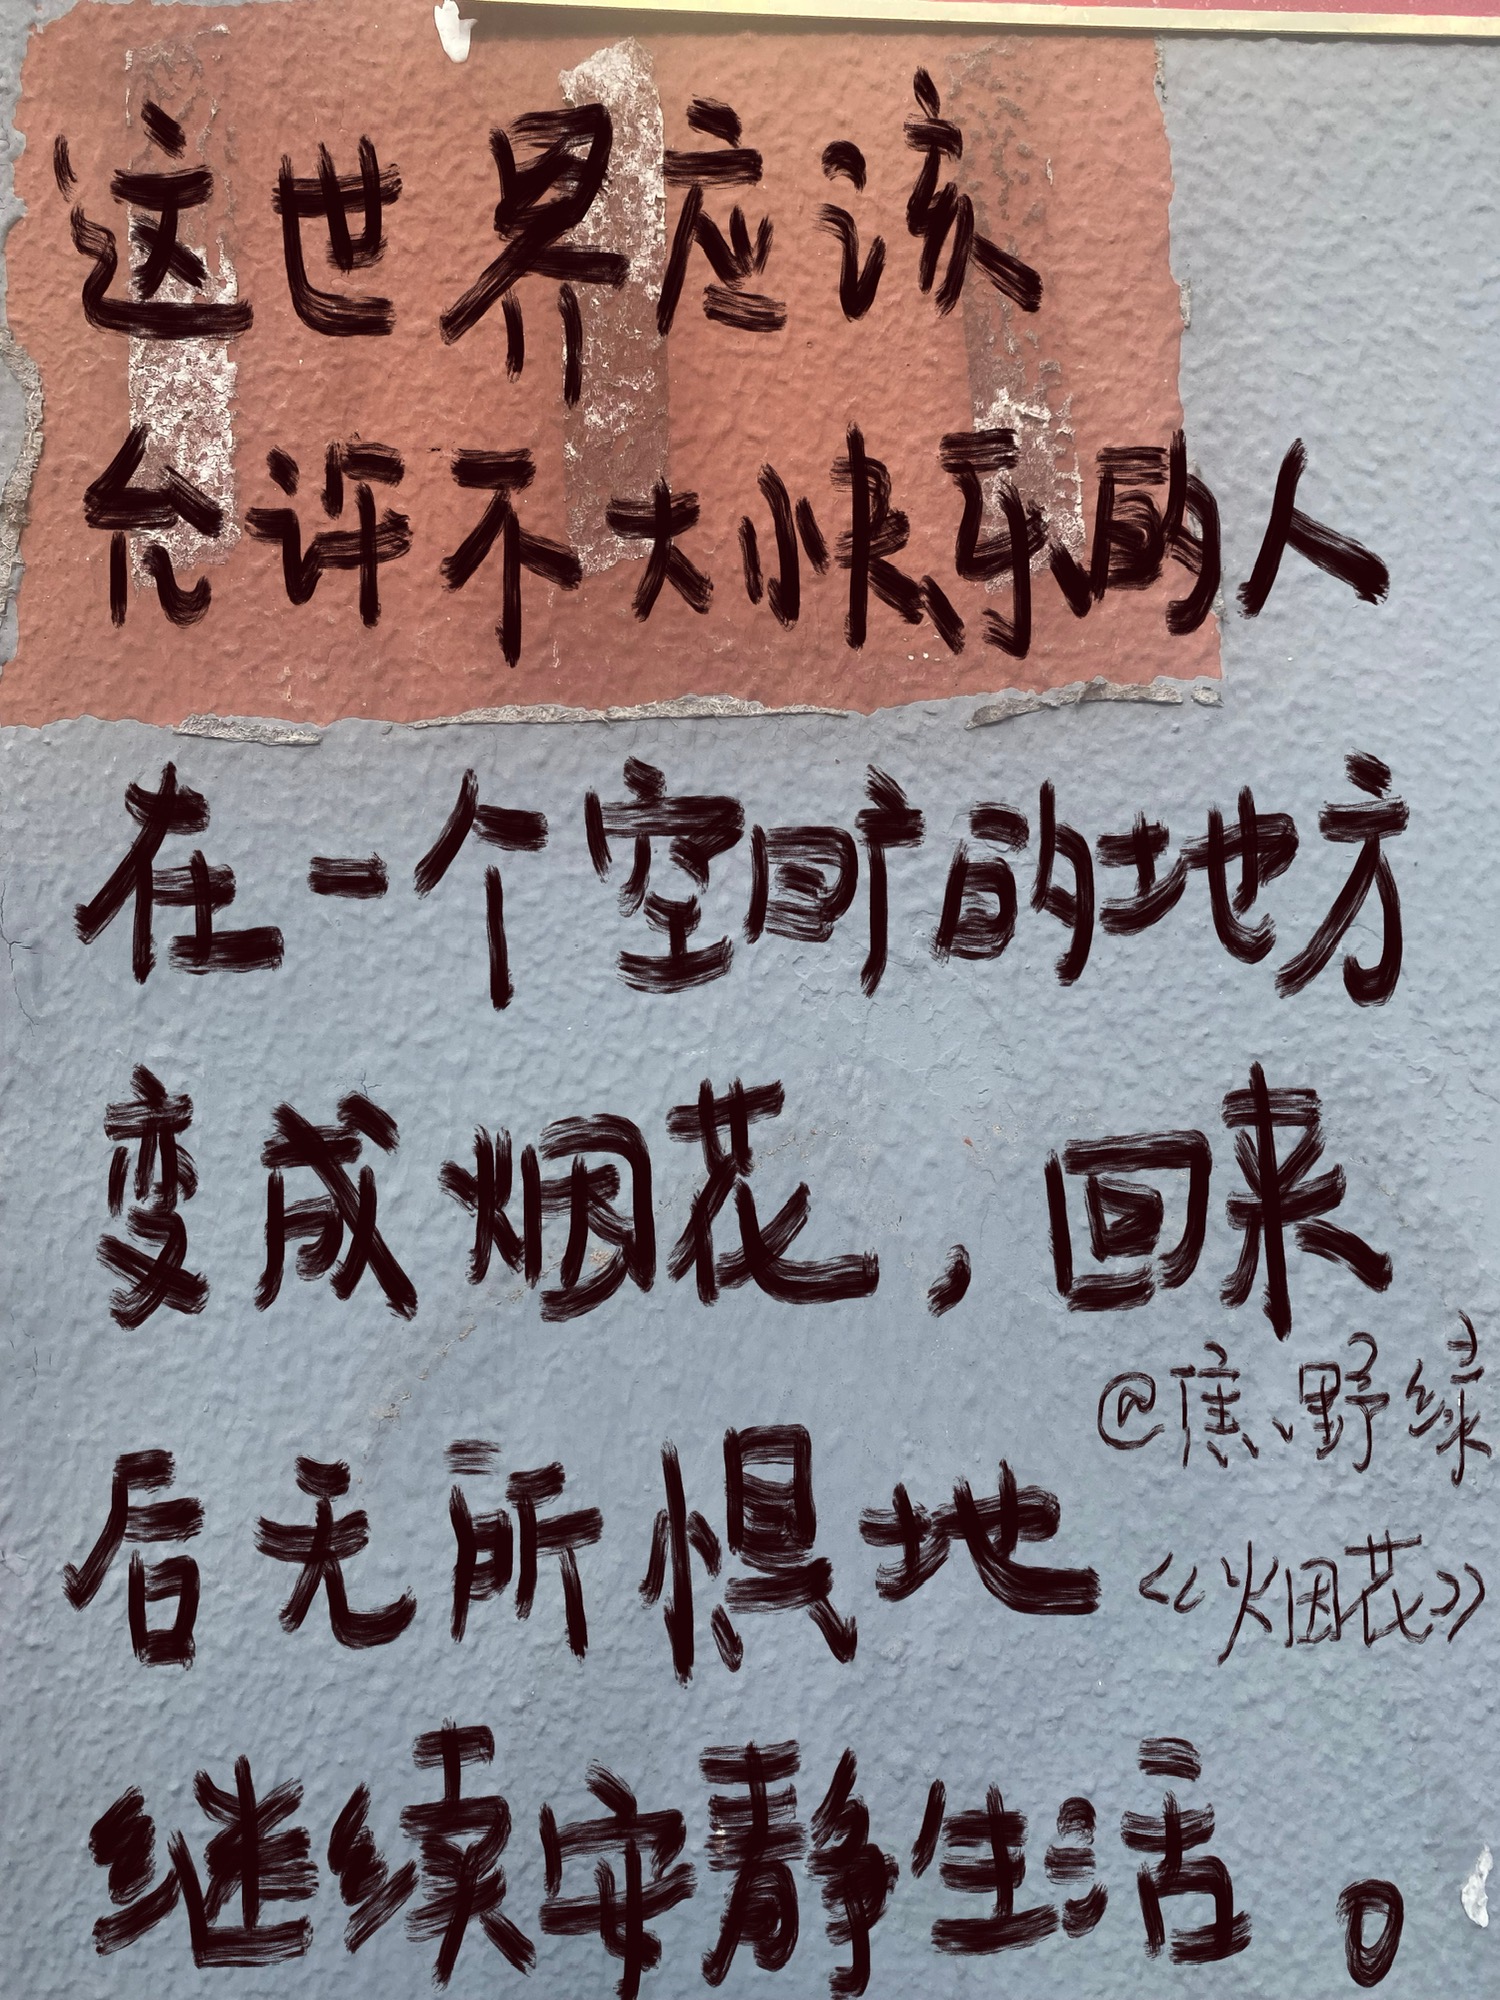 这世界应该
允许不大快乐的人
在一个空旷的地方
变成烟花，回来
@焦野绿
后无所惧地
《烟花》
继续安静生活。